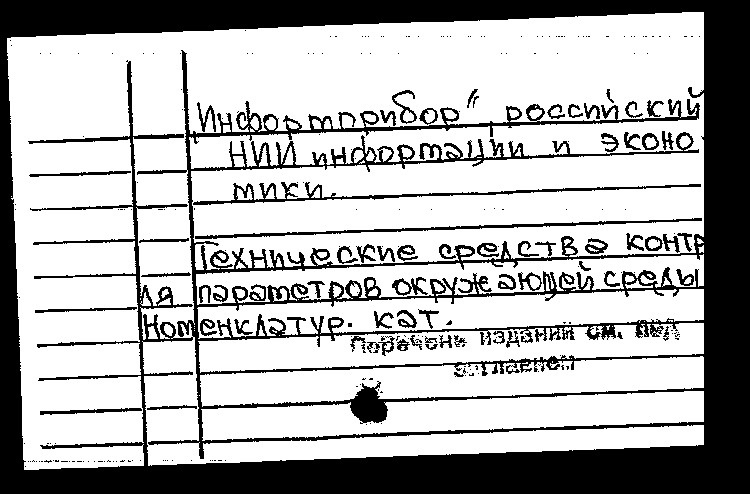 Информприбор", российский
НИИ информации и эконо-
мики.
Технические средства контр
ля параметров окружающей среды
Номенклатур. кат.
Перечень изданий см. под
заглавием